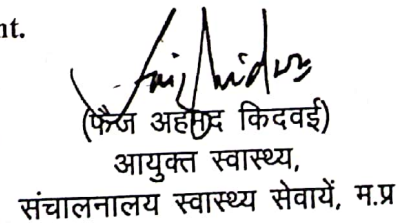 nt.
(फैज अहमद किदवई)
आयुक्त स्वास्थ्य,
संचालनालय स्वास्थ्य सेवायें, म.प्र